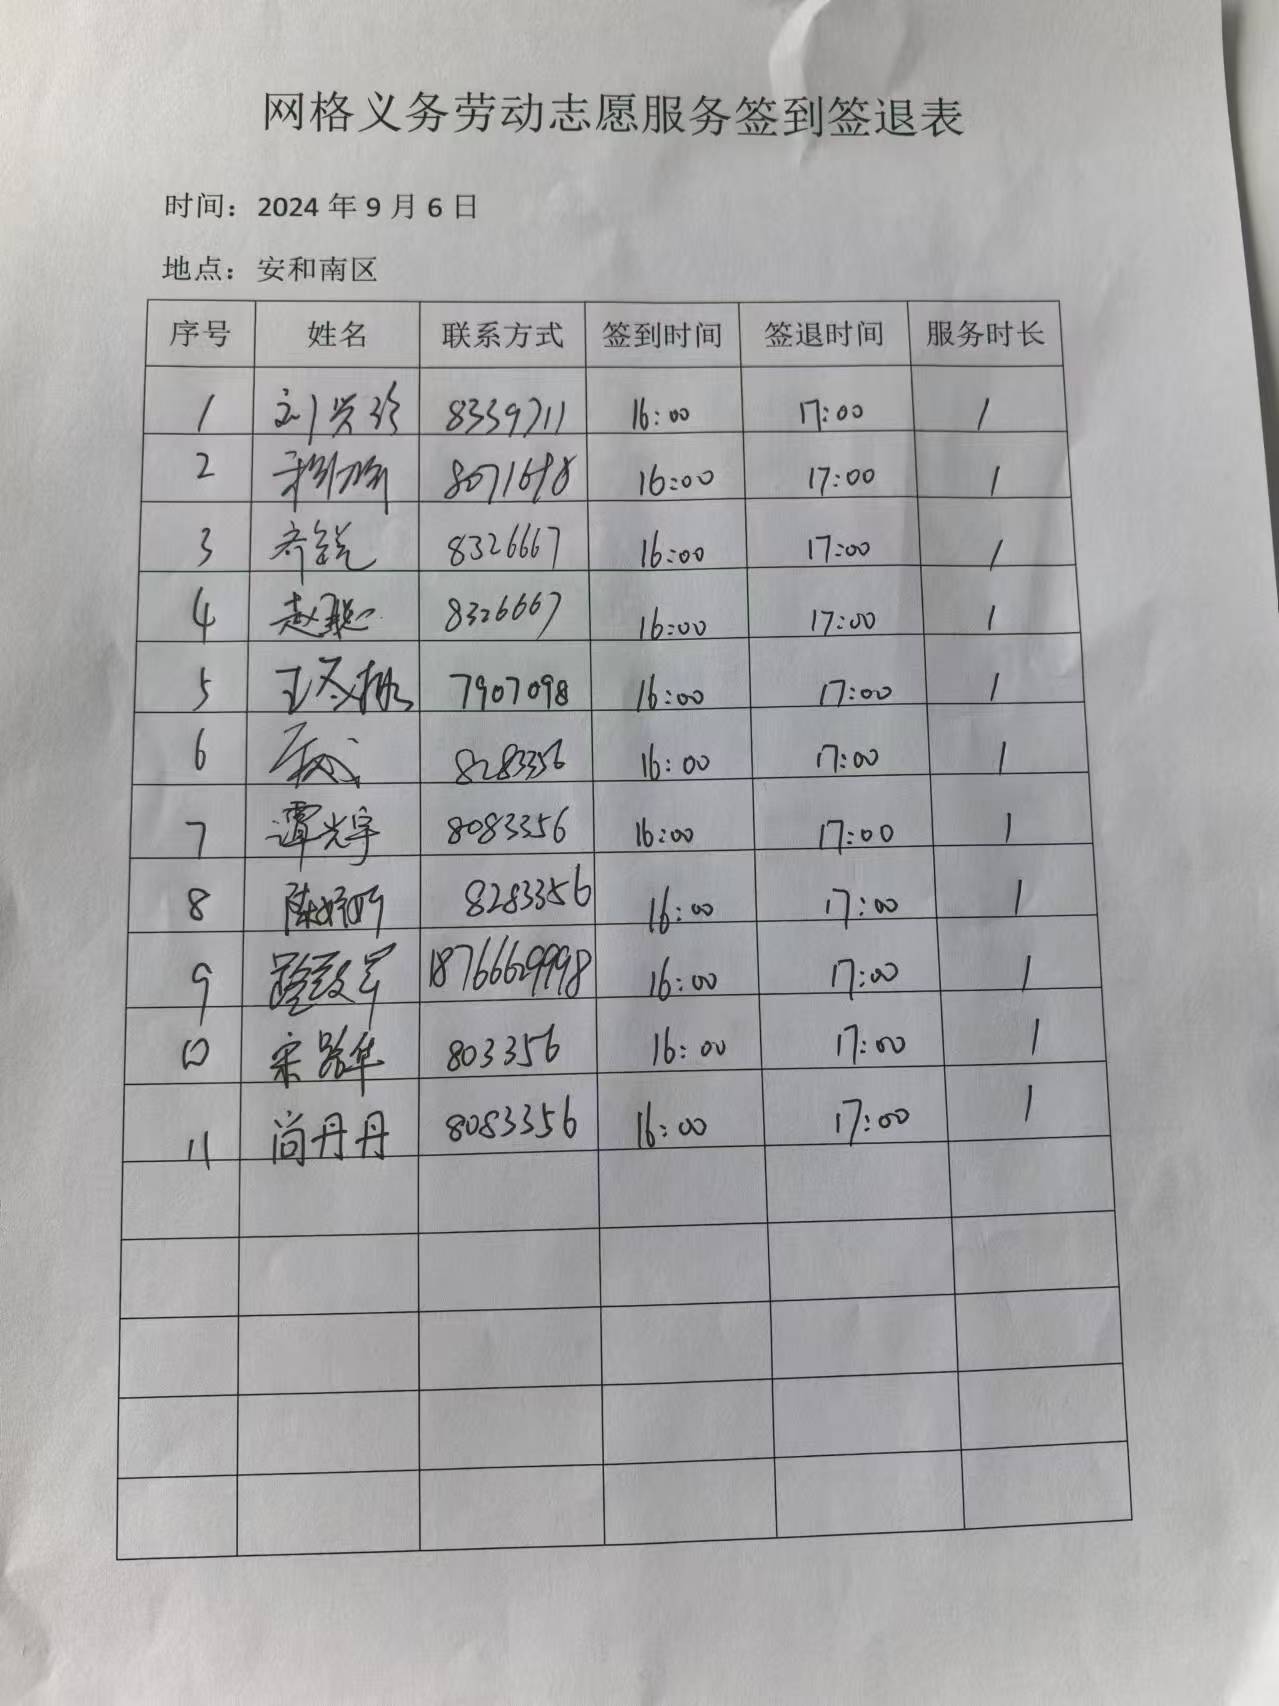 网格义务劳动志愿服务签到签退表
时间：2024 年 9 月 6 日
地点：安和南区
序号 姓名 联系方式 签到时间 签退时间 服务时长
1 刘兴珍 8339711 16:00 17:00 1
2 8071698 16:00 17:00 1
3 齐锐 8326667 16:00 17:00 1
4 赵聪 8326667 16:00 17:00 1
5 王冬梅 7907098 16:00 17:00 1
6 8283356 16:00 17:00 1
7 谭光宇 8083356 16:00 17:00 1
8 陈 8283356 16:00 17:00 1
9 18766629998 16:00 17:00 1
10 宋路华 803356 16:00 17:00 1
11 尚丹丹 8083356 16:00 17:00 1